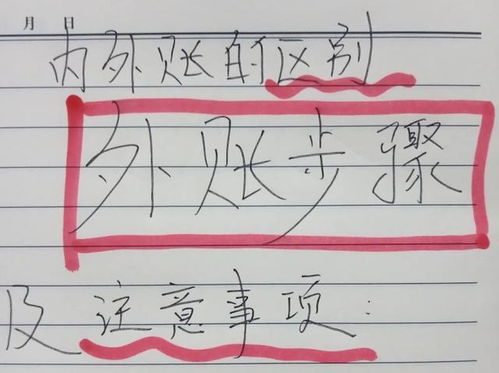 月 日
内外账的区别
外账步骤
及注意事项: